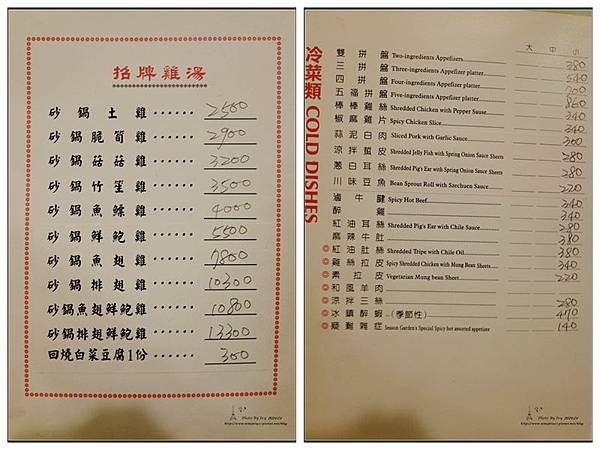 招牌雞湯
砂鍋土雞‥‥‥ 2500
砂鍋脆筍雞‥‥‥ 2900
砂鍋菇菇雞‥‥‥ 3200
砂鍋竹笙雞‥‥‥ 3500
砂鍋魚鰾雞‥‥‥ 4000
砂鍋鮮鮑雞‥‥‥ 5500
砂鍋魚翅雞‥‥‥ 7800
砂鍋排翅雞‥‥‥ 10300
砂鍋魚翅鮮鮑雞‥‥‥ 10800
砂鍋排翅鮮鮑雞‥‥‥ 13300
回燒白菜豆腐1份‥‥‥ 300
冷菜類 COLD DISHES
大 中 小
雙拼盤 Two-ingredients Appefizers 380
三拼盤 Three-ingredients Appefizer platter 540
四拼盤 Four-ingredients Appefizer platter 700
五福拼盤 Five-ingredients Appefizer platter 860
棒棒雞絲 Shredded Chicken with Pepper Sause 340
椒麻雞片 Spicy Chicken Slice 340
蒜泥白肉 Sliced Pork with Garlic Sauce 300
涼拌蜇皮 Shredded Jelly Fish with Spring Onion Sause Sheets 280
蔥白耳絲 Shredded Pig's Ear with Spring Onion Sause Sheets 280
川味豆魚 Bean Sprout Roll with Szechuen Sauce 220
滷牛腱 Spicy Hot Beef 340
醉雞 340
紅油耳絲 Shredded Pig's Ear with Chile Sauce 280
麻辣牛肚 380
紅油肚絲 Shredded Tripe with Chile Oil 380
雞絲拉皮 Spicy Shredded Chicken with Mung Bean Sheets 340
素拉皮 Vegetarian Mung bean Sheet 220
和風羊肉
涼拌三絲 280
冰鎮醉蝦 ...(季節性) 470
疑難雜症 Season Garden's Special Spicy hot assorted appetizer 140